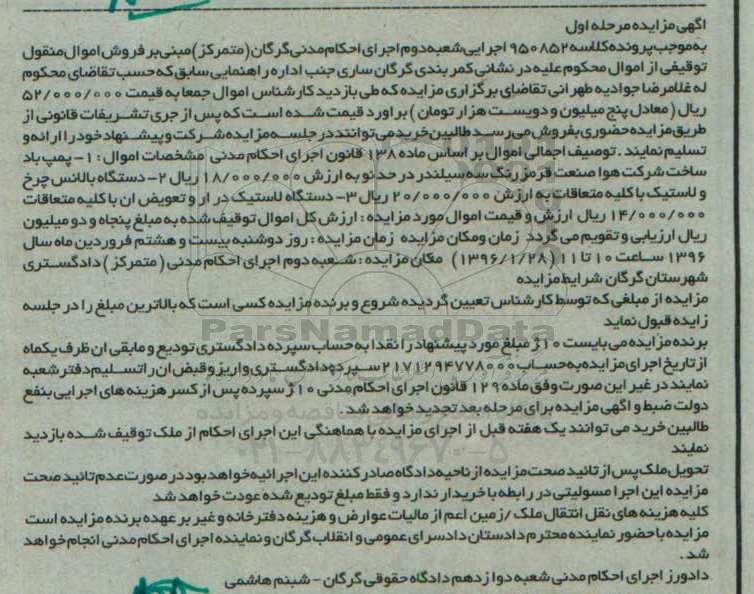 اگهی مزایده مرحله اول
به موجب پرونده کلاسه ۹۵۰۸۵۲ اجرایی شعبه دوم اجرای احکام مدنی گرگان (متمرکز) مبنی بر فروش اموال منقول
توقیفی از اموال محکوم علیه در نشانی کمر بندی گرگان ساری جنب اداره راهنمایی سابق که حسب تقاضای محکوم
له غلامرضا جوادیه طهرانی تقاضای برگزاری مزایده که طی بازدید کارشناس اموال جمعا به قیمت ۵۲/۰۰۰/۰۰۰
ریال ( معادل پنج میلیون و دویست هزار تومان ) براورد قیمت شده است که پس از جری تشریفات قانونی از
طریق مزایده حضوری بفروش می رسد طالبین خرید می توانند در جلسه مزایده شرکت و پیشنهاد خود را ارائه و
تسلیم نمایند . توصیف اجمالی اموال بر اساس ماده ۱۳۸ قانون اجرای احکام مدنی مشخصات اموال : ۱- پمپ باد
ساخت شرکت هوا صنعت قرمز رنگ سه سیلندر در حد نو به ارزش ۱۸/۰۰۰/۰۰۰ ریال ۲- دستگاه بالانس چرخ
و لاستیک با کلیه متعاقات به ارزش ۲۰/۰۰۰/۰۰۰ ریال ۳- دستگاه لاستیک در ار و تعویض ان با کلیه متعاقات
۱۴/۰۰۰/۰۰۰ ریال ارزش و قیمت اموال مورد مزایده : ارزش کل اموال توقیف شده به مبلغ پنجاه و دو میلیون
ریال ارزیابی و تقویم می گردد زمان ومکان مزایده زمان مزایده : روز دوشنبه بیست و هشتم فروردین ماه سال
۱۳۹۶ ساعت ۱۰ تا ۱۱ (۱۳۹۶/۱/۲۸) مکان مزایده : شعبه دوم اجرای احکام مدنی ( متمرکز ) دادگستری
شهرستان گرگان شرایط مزایده
مزایده از مبلغی که توسط کارشناس تعیین گردیده شروع و برنده مزایده کسی است که بالاترین مبلغ را در جلسه
زایده قبول نماید
ParsNamadData
برنده مزایده می بایست ۱۰ژ مبلغ مورد پیشنهاد را نقدا به حساب سپرده دادگستری تودیع و مابقی ان ظرف یکماه
از تاریخ اجرای مزایده به حساب ۲۱۷۱۲۹۴۷۷۸۰۰۰ سپرده دادگستری واریز و قبض ان را تسلیم دفتر شعبه
نمایند در غیر این صورت وفق ماده ۱۲۹ قانون اجرای احکام مدنی ۱۰ژ سپرده پس از کسر هزینه های اجرایی بنفع
دولت ضبط و اگهی مزایده برای مرحله بعد تجدید خواهد شد .
طالبین خرید می توانند یک هفته قبل از اجرای مزایده با هماهنگی این اجرای احکام از ملک توقیف شده بازدید
نمایند
۰۲۱-۸۸۳۴۹۶۷۰-۵
تحویل ملک پس از تائید صحت مزایده از ناحیه دادگاه صادر کننده این اجرائیه خواهد بود در صورت عدم تائید صحت
مزایده این اجرا مسولیتی در رابطه با خریدار ندارد و فقط مبلغ تودیع شده عودت خواهد شد
کلیه هزینه های نقل انتقال ملک /زمین اعم از مالیات عوارض و هزینه دفتر خانه و غیر بر عهده برنده مزایده است
مزایده با حضور نماینده محترم دادستان دادسرای عمومی و انقلاب گرگان و نماینده اجرای احکام مدنی انجام خواهد
شد .
دادورز اجرای احکام مدنی شعبه دوازدهم دادگاه حقوقی گرگان - شبنم هاشمی